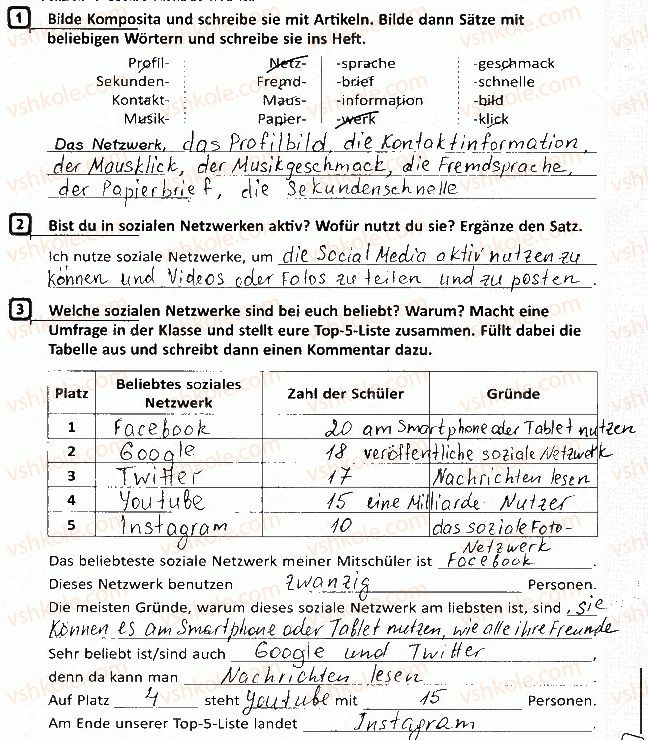 1 Bilde Komposita und schreibe sie mit Artikeln. Bilde dann Sätze mit
beliebigen Wörtern und schreibe sie ins Heft.
Profil- Netz- -sprache -geschmack
Sekunden- Fremd- -brief -schnelle
Kontakt- Maus- -information -bild
Musik- Papier- -werk -klick
Das Netzwerk, das Profilbild, die Kontaktinformation,
der Mausklick, der Musikgeschmack, die Fremdsprache,
der Papierbrief, die Sekundenschnelle
2 Bist du in sozialen Netzwerken aktiv? Wofür nutzt du sie? Ergänze den Satz.
Ich nutze soziale Netzwerke, um die Social Media aktiv nutzen zu
können und Videos oder Fotos zu teilen und zu posten.
3 Welche sozialen Netzwerke sind bei euch beliebt? Warum? Macht eine
Umfrage in der Klasse und stellt eure Top-5-Liste zusammen. Füllt dabei die
Tabelle aus und schreibt dann einen Kommentar dazu.
Platz Beliebtes soziales Netzwerk Zahl der Schüler Gründe
1 Facebook 20 am Smartphone oder Tablet nutzen
2 Google 18 veröffentliche soziale Netzwerk
3 Twitter 17 Nachrichten lesen
4 Youtube 15 eine Milliarde Nutzer
5 Instagram 10 das soziale Foto-
Netzwerk
Das beliebteste soziale Netzwerk meiner Mitschüler ist Facebook.
Dieses Netzwerk benutzen zwanzig Personen.
Die meisten Gründe, warum dieses soziale Netzwerk am liebsten ist, sind, sie
können es am Smartphone oder Tablet nutzen, wie alle ihre Freunde
Sehr beliebt ist/sind auch Google und Twitter,
denn da kann man Nachrichten lesen.
Auf Platz 4 steht Youtube mit 15 Personen.
Am Ende unserer Top-5-Liste landet Instagram.
vshkole.com